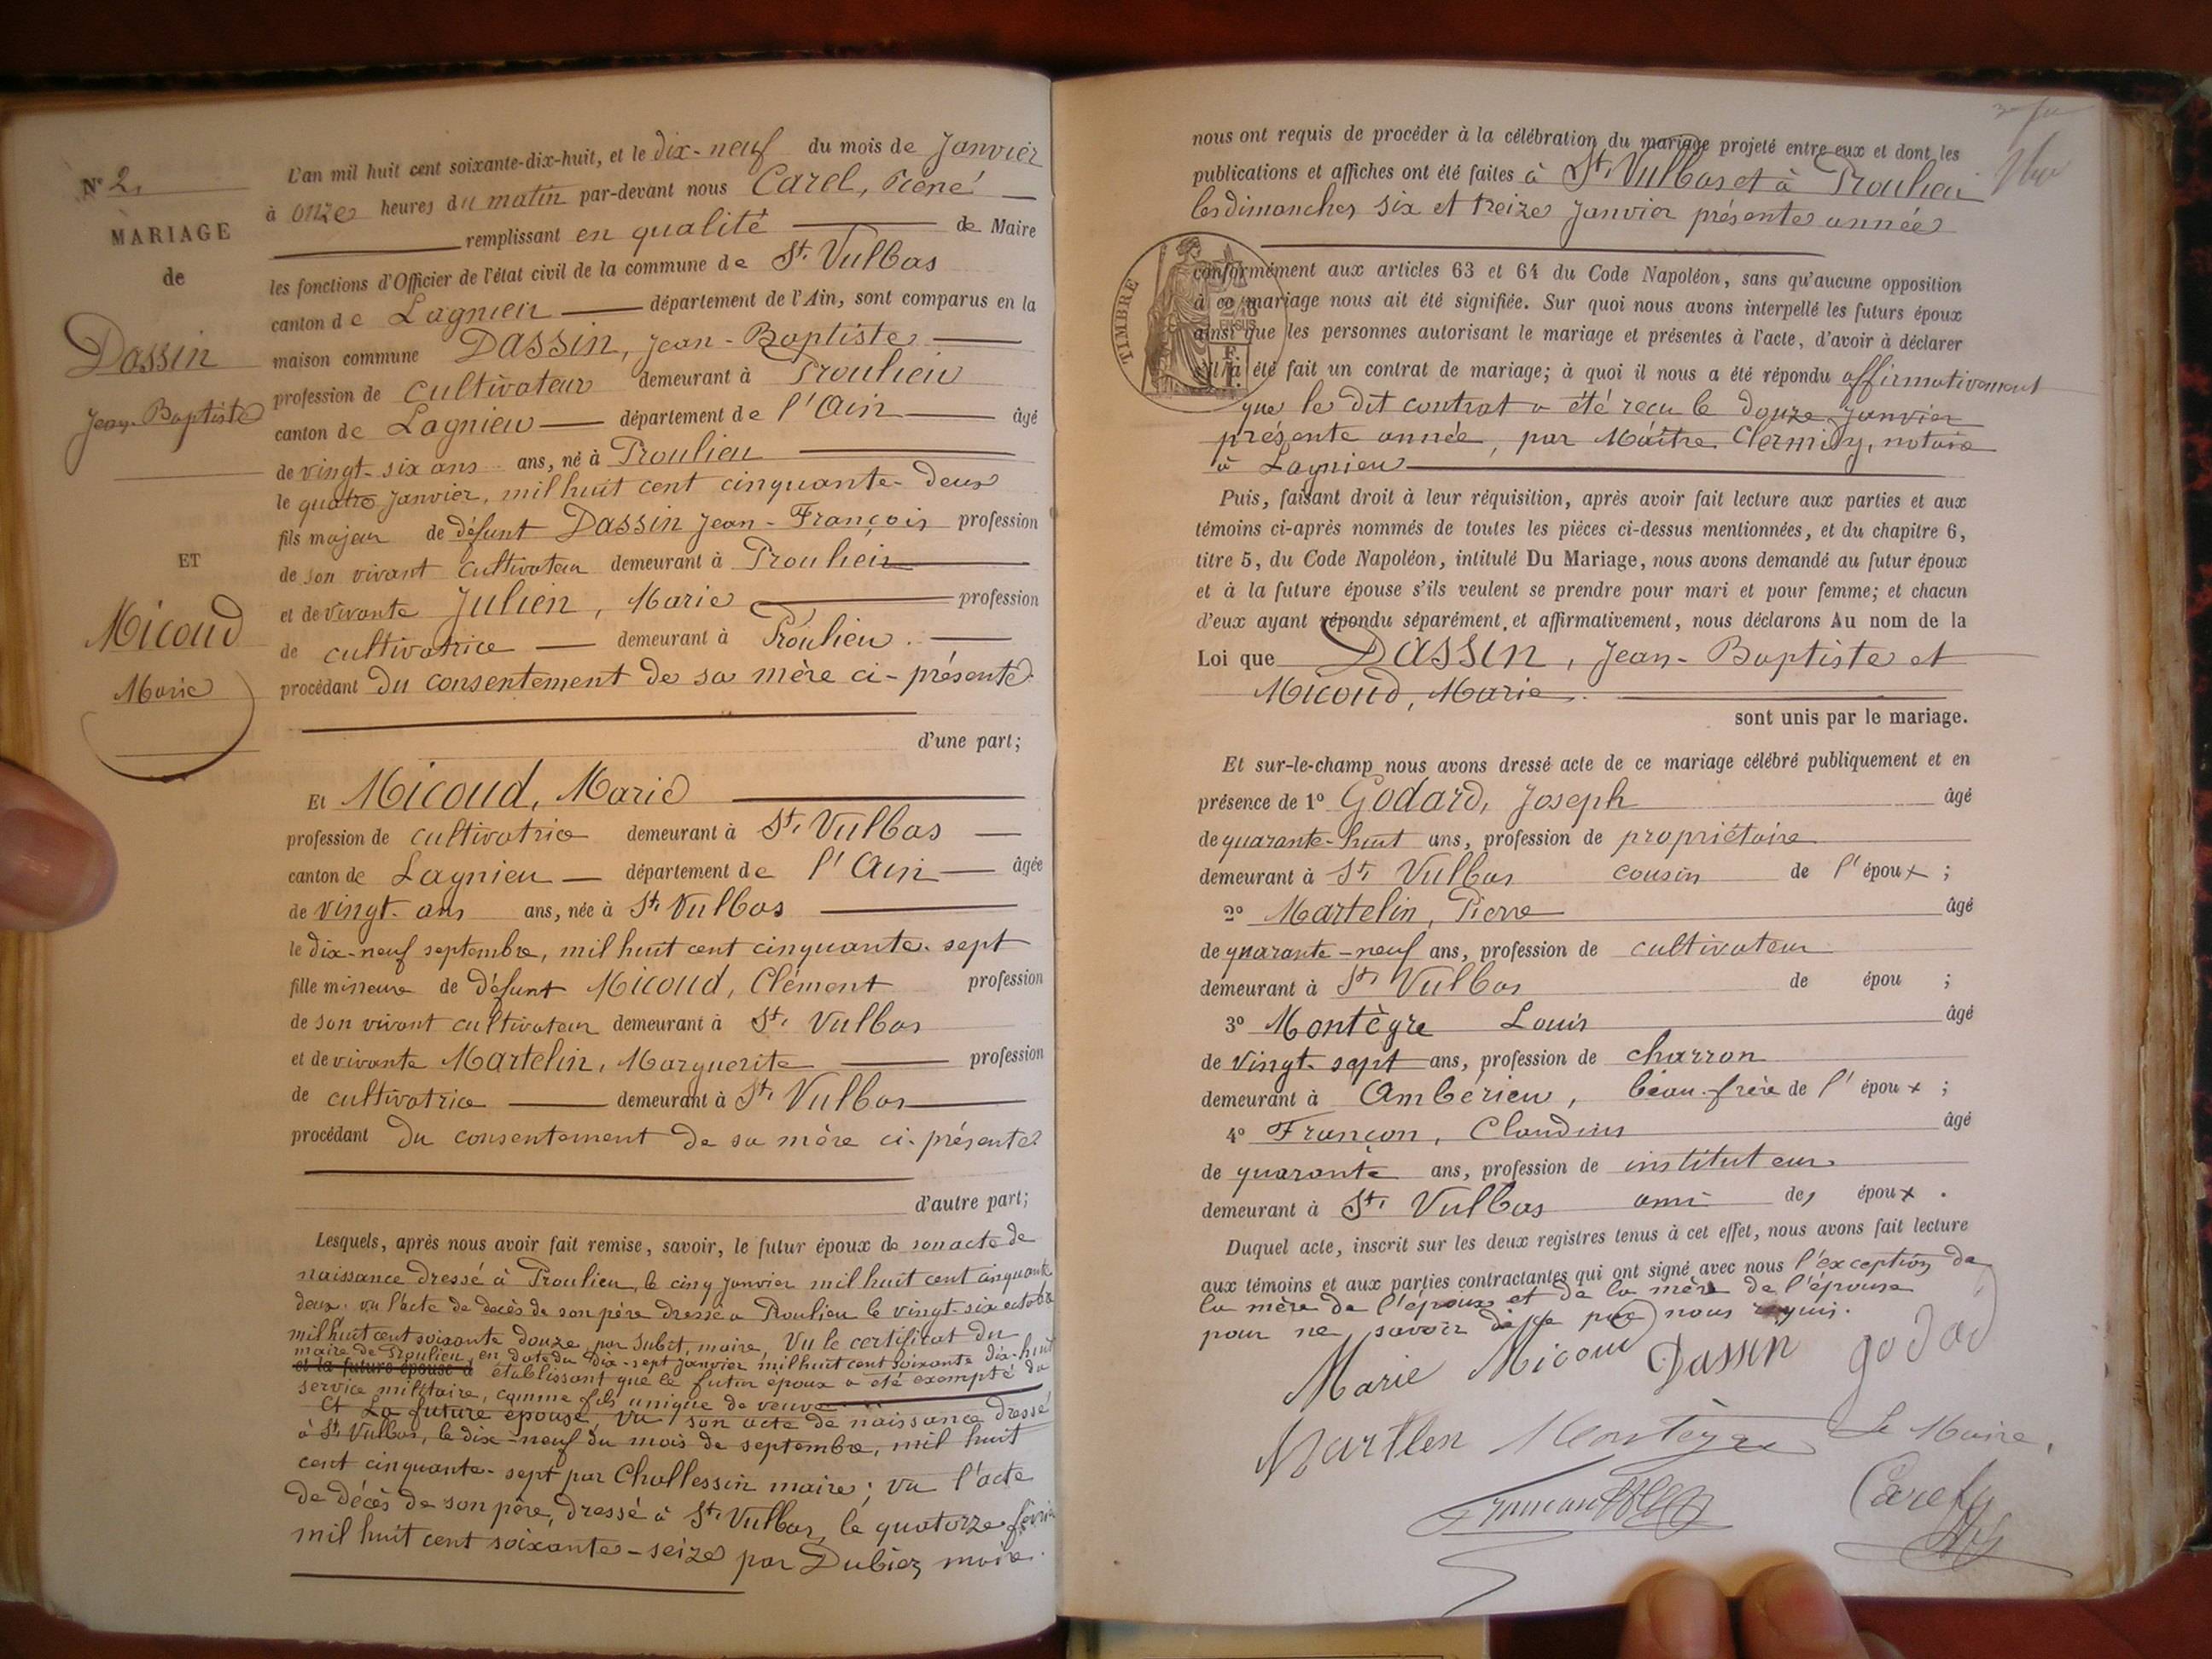 N° 2.
MARIAGE
de
Dassin
Jean-Baptiste
ET
Micoud
Marie
L'an mil huit cent soixante-dix-huit, et le dix-neuf du mois de Janvier
à onze heures du matin par-devant nous Carel, René
remplissant en qualité de Maire
les fonctions d'Officier de l'état civil de la commune de St. Vulbas
canton de Lagnieu département de l'Ain, sont comparus en la
maison commune Dassin, Jean-Baptiste
profession de cultivateur demeurant à Proulieu
canton de Lagnieu département de l'Ain âgé
de vingt-six ans ans, né à Proulieu
le quatre Janvier, mil huit cent cinquante-deux
fils majeur de défunt Dassin Jean-François profession
de son vivant cultivateur demeurant à Proulieu
et de vivante Julien, Marie profession
de cultivatrice demeurant à Proulieu.
procédant du consentement de sa mère ci-présente
d'une part;
Et Micoud, Marie
profession de cultivatrice demeurant à St. Vulbas
canton de Lagnieu département de l'Ain âgée
de vingt-ans ans, née à St. Vulbas
le dix-neuf septembre, mil huit cent cinquante-sept
fille mineure de défunt Micoud, Clément profession
de son vivant cultivateur demeurant à St. Vulbas
et de vivante Martelin, Marguerite profession
de cultivatrice demeurant à St. Vulbas
procédant du consentement de sa mère ci-présente
d'autre part;
Lesquels, après nous avoir fait remise, savoir, le futur époux de son acte de
naissance dressé à Proulieu, le cinq janvier mil huit cent cinquante
deux. vu l'acte de décès de son père dressé à Proulieu le vingt-six octobre
mil huit cent soixante douze, par maire, Vu le certificat du
maire de Proulieu, en date du dix-sept janvier mil huit cent soixante dix-huit
et la future épouse a établissant que le futur époux a été exempté du
service militaire, comme fils unique de veuve
Et La future épouse, vu son acte de naissance dressé
à St. Vulbas, le dix-neuf du mois de septembre, mil huit
cent cinquante-sept par Chollessin maire; vu l'acte
de décès de son père, dressé à St. Vulbas, le quatorze février
mil huit cent soixante-seize par Dubiez maire.
nous ont requis de procéder à la célébration du mariage projeté entre eux et dont les
publications et affiches ont été faites à St. Vulbas et à Proulieu
les dimanches six et treize Janvier présente année
TIMBRE
conformément aux articles 63 et 64 du Code Napoléon, sans qu'aucune opposition
à ce mariage nous ait été signifiée. Sur quoi nous avons interpellé les futurs époux
ainsi que les personnes autorisant le mariage et présentes à l'acte, d'avoir à déclarer
s'il a été fait un contrat de mariage; à quoi il nous a été répondu affirmativement
que le dit contrat a été reçu le douze Janvier
présente année, par Maître Clermidy, notaire
à Lagnieu
Puis, faisant droit à leur réquisition, après avoir fait lecture aux parties et aux
témoins ci-après nommés de toutes les pièces ci-dessus mentionnées, et du chapitre 6,
titre 5, du Code Napoléon, intitulé Du Mariage, nous avons demandé au futur époux
et à la future épouse s'ils veulent se prendre pour mari et pour femme; et chacun
d'eux ayant répondu séparément et affirmativement, nous déclarons Au nom de la
Loi que Dassin, Jean-Baptiste et
Micoud, Marie.
sont unis par le mariage.
Et sur-le-champ nous avons dressé acte de ce mariage célébré publiquement et en
présence de 1° Godard, Joseph âgé
de quarante-huit ans, profession de propriétaire
demeurant à St. Vulbas cousin de l'époux;
2° Martelin, Pierre âgé
de quarante-neuf ans, profession de cultivateur
demeurant à St. Vulbas de épou ;
3° Montègre Louis âgé
de vingt-sept ans, profession de charron
demeurant à Ambérieu, beau-frère de l'époux;
4° Françon, Claudius âgé
de quarante ans, profession de instituteur
demeurant à St. Vulbas ami des époux.
Duquel acte, inscrit sur les deux registres tenus à cet effet, nous avons fait lecture
aux témoins et aux parties contractantes qui ont signé avec nous l'exception de
la mère de l'époux et de la mère de l'épouse
pour ne savoir de ce par nous requis.
Marie Micoud Dassin godad
Martlen Montègre Le Maire,
Françon Carel